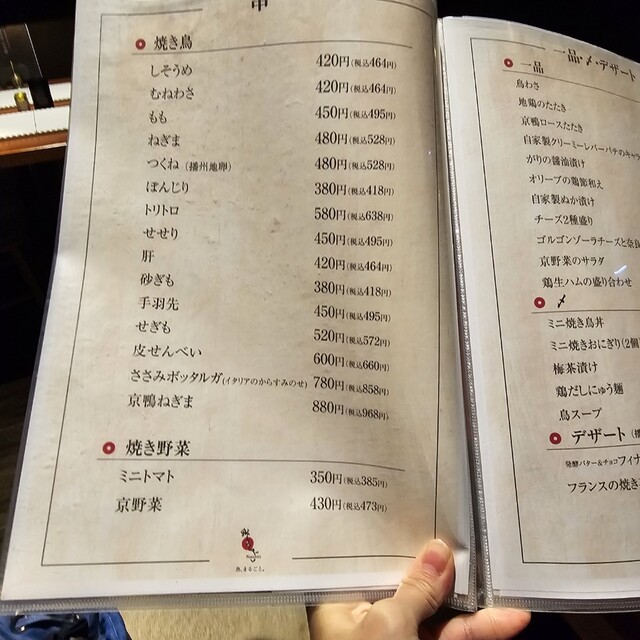 串
焼き鳥
しそうめ 420円(税込464円)
むねわさ 420円(税込464円)
もも 450円(税込495円)
ねぎま 480円(税込528円)
つくね (播州地卵) 480円(税込528円)
ぼんじり 380円(税込418円)
トリトロ 580円(税込638円)
せせり 450円(税込495円)
肝 420円(税込464円)
砂ぎも 380円(税込418円)
手羽先 450円(税込495円)
せぎも 520円(税込572円)
皮せんべい 600円(税込660円)
ささみボッタルガ(イタリアのからすみのせ) 780円(税込858円)
京鴨ねぎま 880円(税込968円)
焼き野菜
ミニトマト 350円(税込385円)
京野菜 430円(税込473円)
鳥、まるごと。
一品・〆・デザート
一品
鳥わさ
地鶏のたたき
京鴨ロースたたき
自家製クリーミーレバーパテのキャラ
がりの醤油漬け
オリーブの鶏節和え
自家製ぬか漬け
チーズ2種盛り
ゴルゴンゾーラチーズと奈良
京野菜のサラダ
鶏生ハムの盛り合わせ
〆
ミニ焼き鳥丼
ミニ焼きおにぎり(2個
梅茶漬け
鶏だしにゅう麺
鳥スープ
デザート
発酵バター&チョコフィナ
フランスの焼き